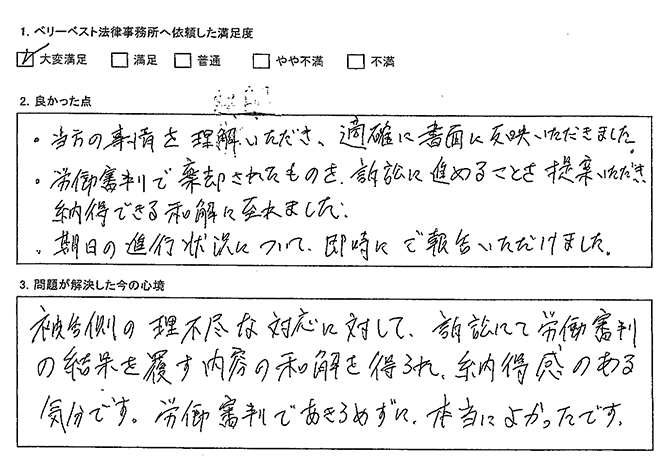 1. ベリーベスト法律事務所へ依頼した満足度
☑ 大変満足 □ 満足 □ 普通 □ やや不満 □ 不満
2. 良かった点
・当方の事情を理解いただき、適確に書面に反映いただきました。
・労働審判で棄却されたものを、訴訟に進めることを提案いただき
納得できる和解に至れました。
・期日の進行状況について、即時にご報告いただけました。
3. 問題が解決した今の心境
被告側の理不尽な対応に対して、訴訟にて労働審判
の結果を覆す内容の和解を得られ、納得感のある
気分です。労働審判であきらめずに、本当によかったです。